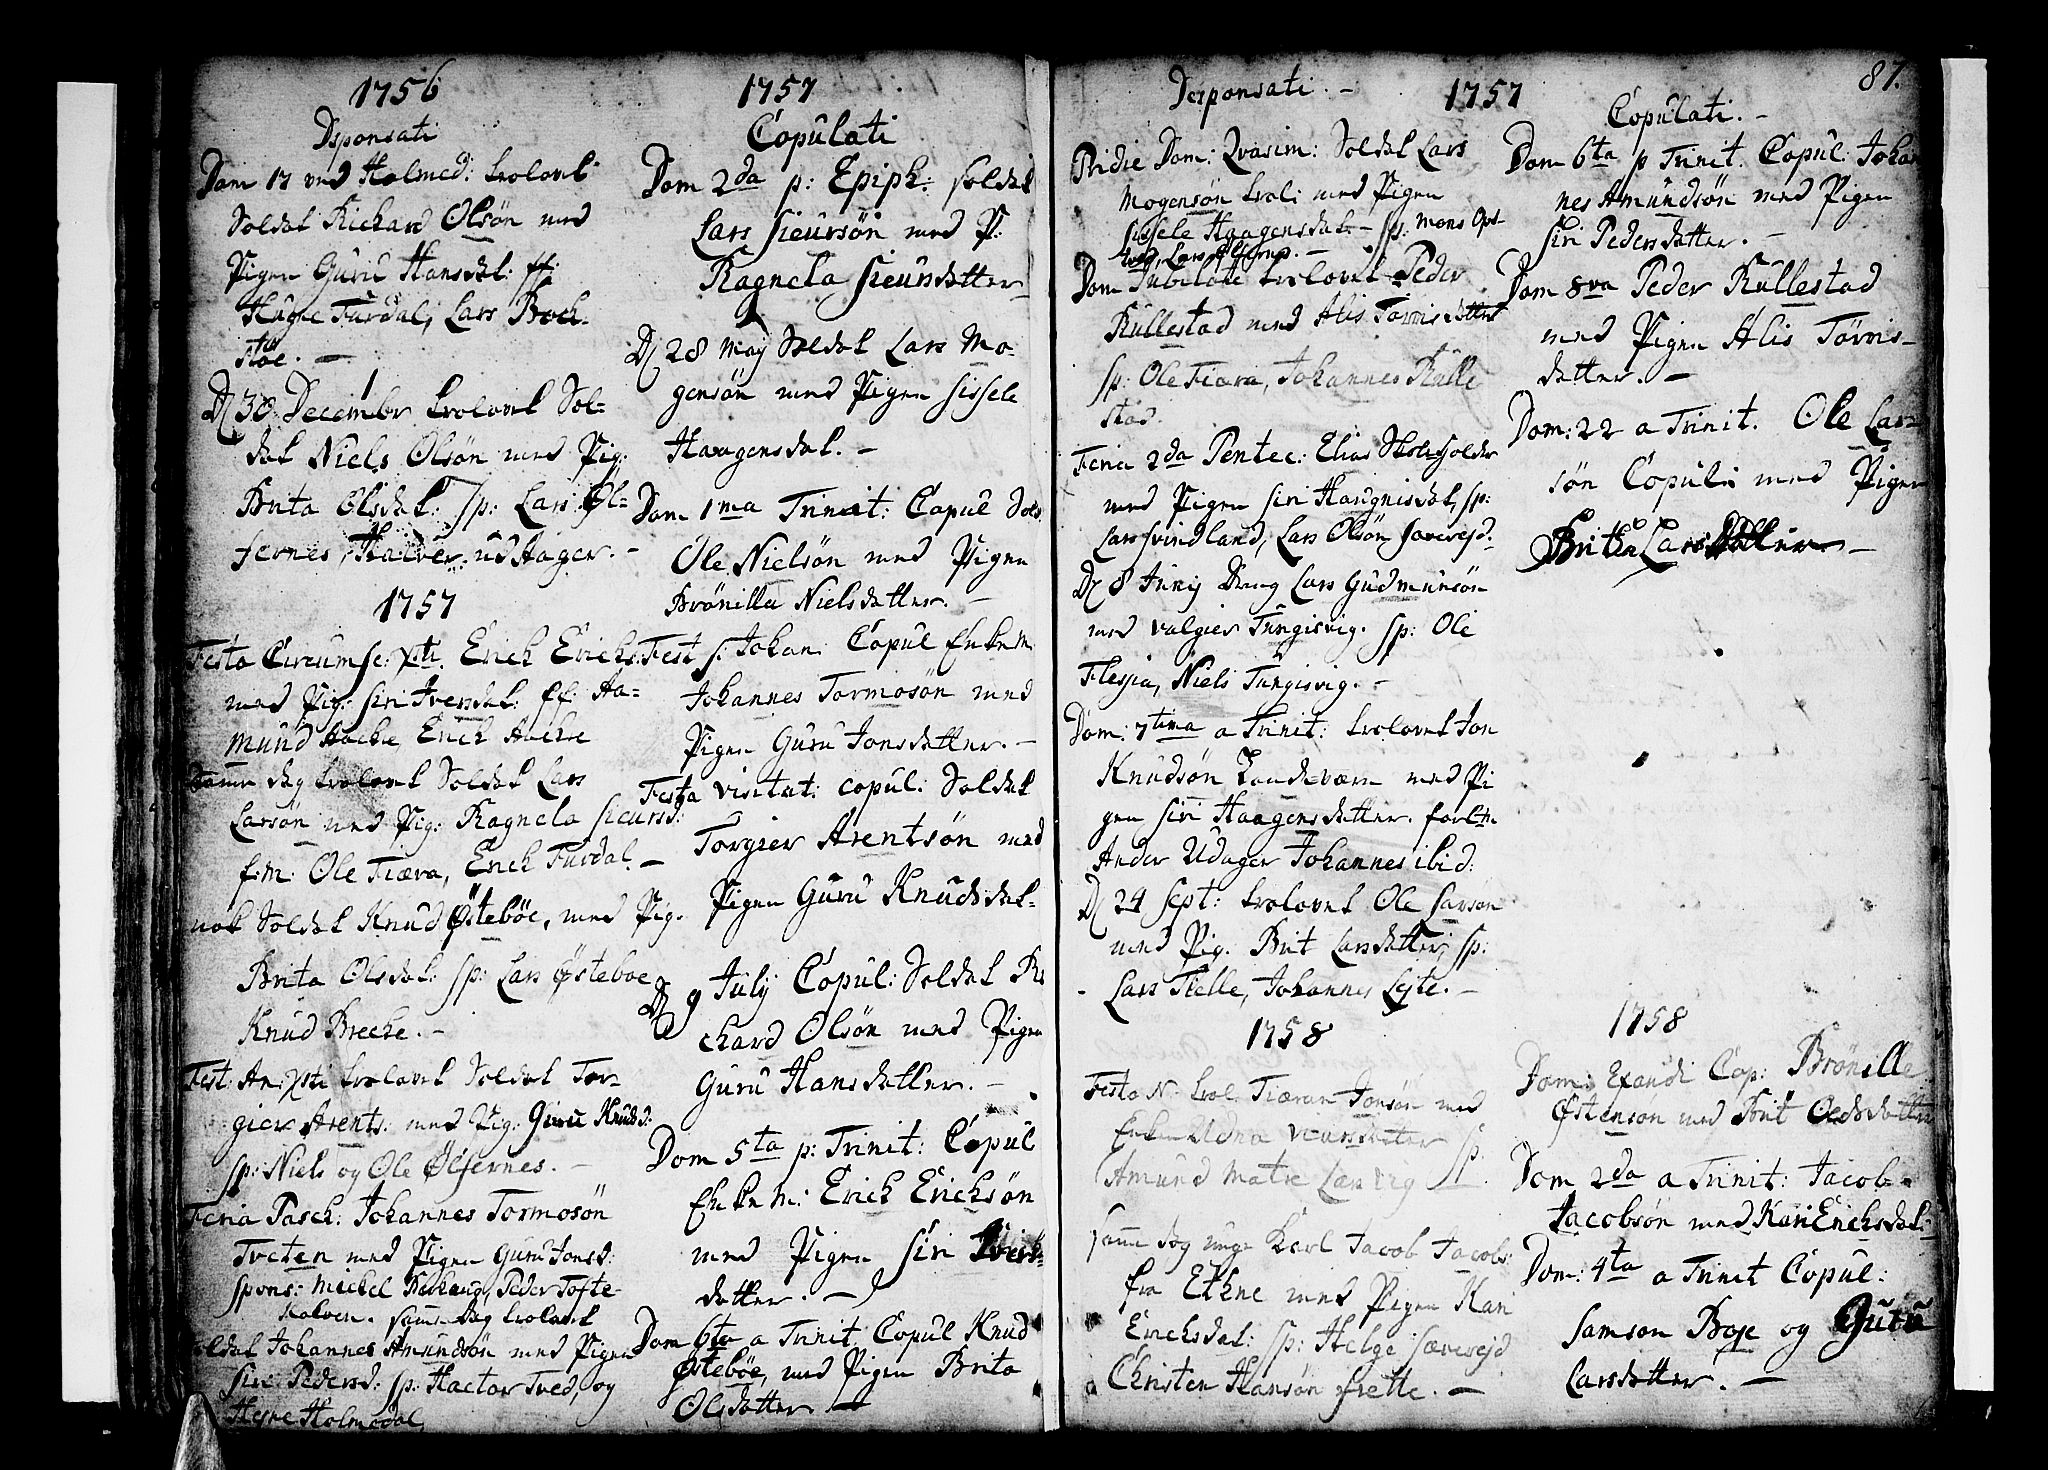 1756
Dsponsati
Dom 17 ved Holmed: trolovet
Soldat Richard Olsön med
Pigen Guru Hansdat: ff:
Hugne Furdal, Lars Beck-
stöe. —
D 30 Decembr trolovet Sol-
dat Niels Olsön med Pig:
Brita Olsdat: Sp: Lars Øl-
fernes, Halver udHager. -
1757
Festo Circumsc: Xsti. Erich Erichs:
med Pig: Siri Iversdat: ff. Aa-
mund Aacke Erich Aacke
Samme dag trolovet Soldat Lars
Larsön med Pig: Ragnela Sieursd:
f:m: Ole Fiæra, Erich Furdal. —
nok Soldat Knud Östeböe, med Pig.
Brita Olsdat: sp: Lars Østeboe
Knud Brecke. -
Fest: An: Xsti trolovet Soldat Tor-
gier Arents: med Pig: Guru Knudsd:
sp: Niels og Ole Ølfernes. -
Feria Pasch: Johannes Tormosön
Tveten med Pigen Guru Jonsd:
spons: Mickel Peder Tofte-
kalven. samme dag trolovet
Soldat Johannes Amundsön med Pigen
Siri Pedersd: sp: Hactor Tved, og
Holmedal,
1757
Copulati
Dom 2da p: Epiph: Soldat
Lars Sieursön med P:
Ragnela Sieursdatter
D 28 May Soldat Lars Mo-
gensön med Pigen Sissele
Haagensdat. -
Dom 1ma Trinit: Copul Sold
Ole Nielsön med Pigen
Brönilla Nielsdatter. -
Fest S: Johan: Copul Enkem
Johannes Tormosön med
Pigen Guru Jonsdatter. -
Festa visitat: copul: Soldat
Torgier Arentsön med
Pigen Guru Knudsdat-
D 9 July Copul: Soldat Ri
chard Olsön med Pigen
Guru Hansdatter. -
Dom 5ta p: Trinit: Copul
Enkem: Erich Erichsön
med Pigen Siri Ivers-
datter. —
Dom 6ta a Trinit Copul Knud
Östeböe, med Pigen Brita
Olsdatter —
Desponsati. -
1757
87.
Pridie Dom: Qvasim: Soldat Lars
Mogensön trol: med Pigen
Sissele Haagensdat. - Sp: Mons Opst-
Lars Ølfernes. -
Dom Jubilate trolovet Peder
Rullestad med Alis Törrisdatter
sp: Ole Fiæra, Johannes Rulle
stad.
Feria 2da Pentec: Elias Skoleholder
med Pigen Siri Haugnisdat, sp:
Lars Svindland, Lars Olsön Særvejd.
D 8 Junij Dreng Lars Gudmunsön
med valgier Tungisvig. Sp: Ole
Flesjea, Niels Tungisvig. -
Dom: 7tima a Trinit: trolovet Jon
Knudsön Landeværn med Pi
gen Siri Haagensdatter. forl:m
Ander Udager Johannes ibid:
D 24 Sept: trolovet Ole Larsön
med Pig. Brit Larsdatter, sp:
Lars Helle, Johannes Lejte. -
1758
Festo N: trol. Tiæran Jonsön med
Enken Udna sp.
Amund Matre Larsvig
Samme dag unge Karl Jacob Jacobs:
fra Ethne med Pigen Kari
Erichsdat: sp: Helge Særvejd
Christen Hansön frette. —
Copulati. -
Dom 6ta p Trinit. Copul: Johan
nes Amundsön med Pigen
Siri Pedersdatter. -
Dom 8va Peder Rullestad
med Pigen Alis Törris-
datter. —
Dom: 22 a Trinit. Ole Lar-
sön Copul: med Pigen
Britha Larsdatter —
1758
Dom: Exaudi Cop: Brönelle
Østensön med Brit Oldsdatter
Dom 2da a Trinit: Jacob
Jacobsön med Kari Erichsdat:
Dom: 4ta a Trinit Copul:
Samson Boje og Guru
Larsdatter. —